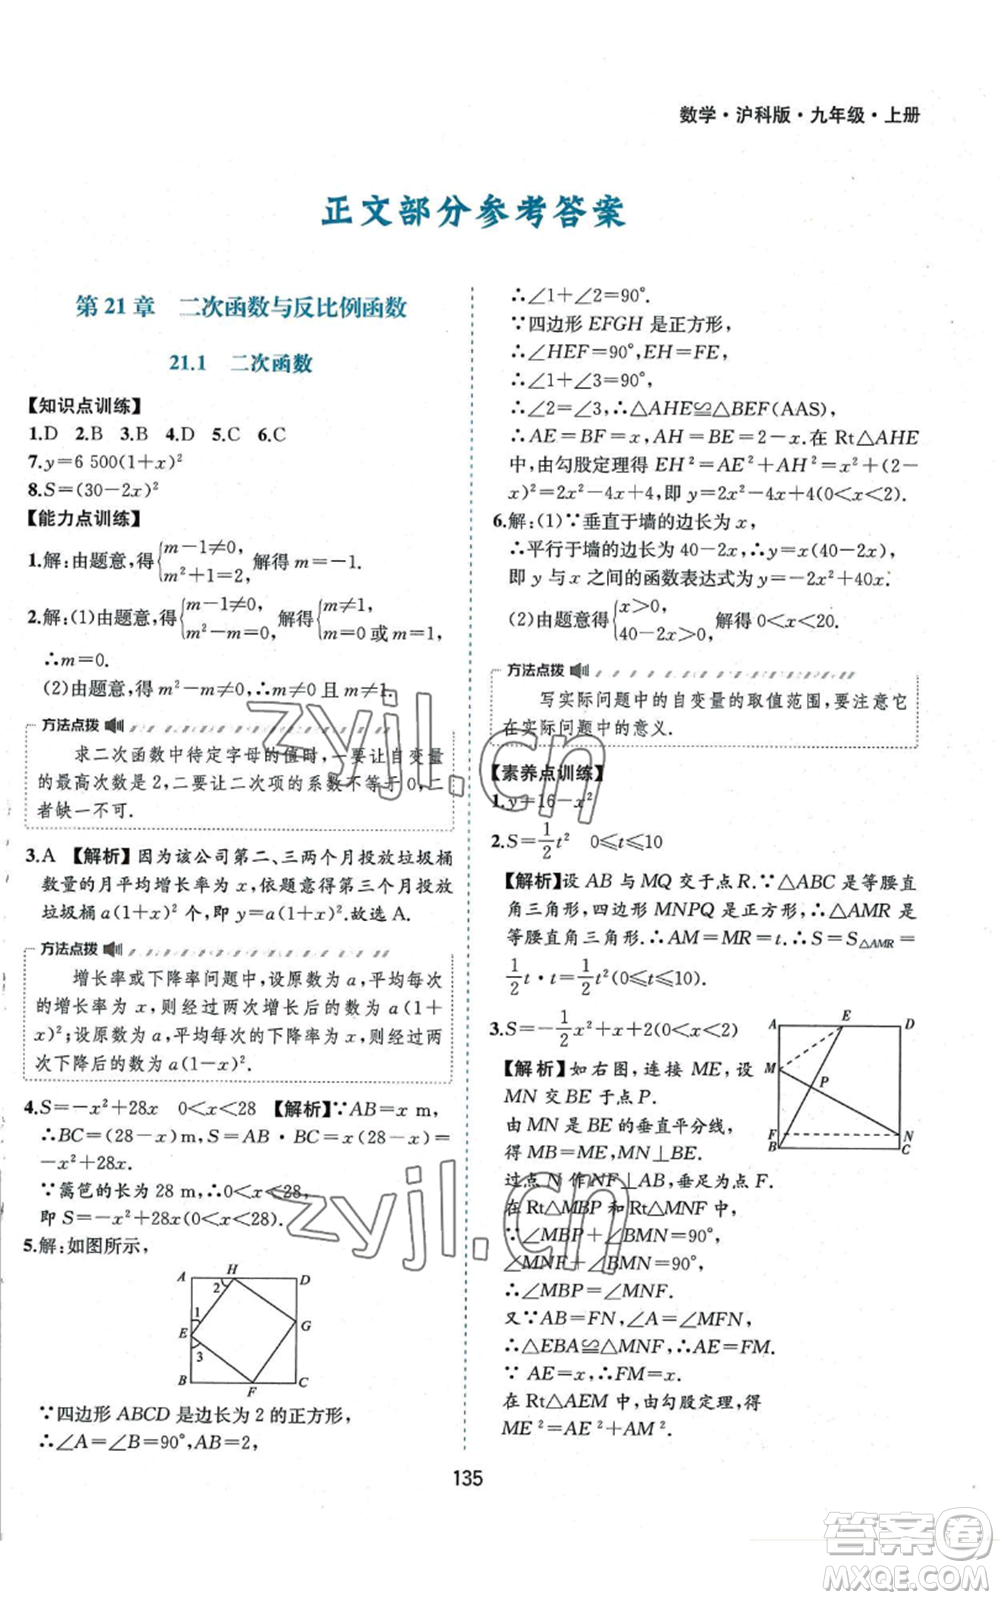 数学·沪科版·九年级·上册
正文部分参考答案
第21章 二次函数与反比例函数
21.1 二次函数
【知识点训练】
1.D 2.B 3.B 4.D 5.C 6.C
7.y=6 500(1+x)²
8.S=(30-2x)²
【能力点训练】
1.解:由题意,得{m-1≠0, m²+1=2, 解得 m=-1.
2.解:(1)由题意,得{m-1≠0, m²-m=0, 解得{m≠1, m=0 或 m=1,
∴m=0.
(2)由题意,得 m²-m≠0,∴m≠0 且 m≠1.
方法点拨
求二次函数中待定字母的值时,一要让自变量
的最高次数是 2,二要让二次项的系数不等于 0,二
者缺一不可.
3.A 【解析】因为该公司第二、三两个月投放垃圾桶
数量的月平均增长率为 x,依题意得第三个月投放
垃圾桶 a(1+x)² 个,即 y=a(1+x)².故选 A.
方法点拨
增长率或下降率问题中,设原数为 a,平均每次
的增长率为 x,则经过两次增长后的数为 a(1+
x)²;设原数为 a,平均每次的下降率为 x,则经过两
次下降后的数为 a(1-x)².
4.S=-x²+28x 0<x<28 【解析】∵AB=x m,
∴BC=(28-x)m,S=AB·BC=x(28-x)=
-x²+28x.
∵篱笆的长为 28 m,∴0<x<28,
即 S=-x²+28x(0<x<28).
5.解:如图所示,
A H D
2
1
E G
3
B F C
∵四边形 ABCD 是边长为 2 的正方形,
∴∠A=∠B=90°,AB=2,
∴∠1+∠2=90°.
∵四边形 EFGH 是正方形,
∴∠HEF=90°,EH=FE,
∴∠1+∠3=90°,
∴∠2=∠3,∴△AHE≌△BEF(AAS),
∴AE=BF=x,AH=BE=2-x.在 Rt△AHE
中,由勾股定理得 EH²=AE²+AH²=x²+(2-
x)²=2x²-4x+4,即 y=2x²-4x+4(0<x<2).
6.解:(1)∵垂直于墙的边长为 x,
∴平行于墙的边长为 40-2x,∴y=x(40-2x),
即 y 与 x 之间的函数表达式为 y=-2x²+40x.
(2)由题意,得{x>0, 40-2x>0, 解得 0<x<20.
方法点拨
写实际问题中的自变量的取值范围,要注意它
在实际问题中的意义.
【素养点训练】
1.y=16-x²
2.S=1/2 t² 0≤t≤10
【解析】设 AB 与 MQ 交于点 R.∵△ABC 是等腰直
角三角形,四边形 MNPQ 是正方形,∴△AMR 是
等腰直角三角形.∴AM=MR=t.∴S=S△AMR=
1/2 t·t=1/2 t²(0≤t≤10).
3.S=-1/2 x²+x+2(0<x<2)
【解析】如右图,连接 ME,设
MN 交 BE 于点 P.
由 MN 是 BE 的垂直平分线,
得 MB=ME,MN⊥BE.
过点 N 作 NF⊥AB,垂足为点 F.
在 Rt△MBP 和 Rt△MNF 中,
∵∠MBP+∠BMN=90°,
∠MNF+∠BMN=90°,
∴∠MBP=∠MNF.
又∵AB=FN,∠A=∠MFN,
∴△EBA≌△MNF,∴AE=FM.
∵AE=x,∴FM=x.
在 Rt△AEM 中,由勾股定理,得
ME²=AE²+AM².
A E D
M
P
F N
B C
135
zyjl.cn
zyjl.cn
答案卷
MXQE.COM